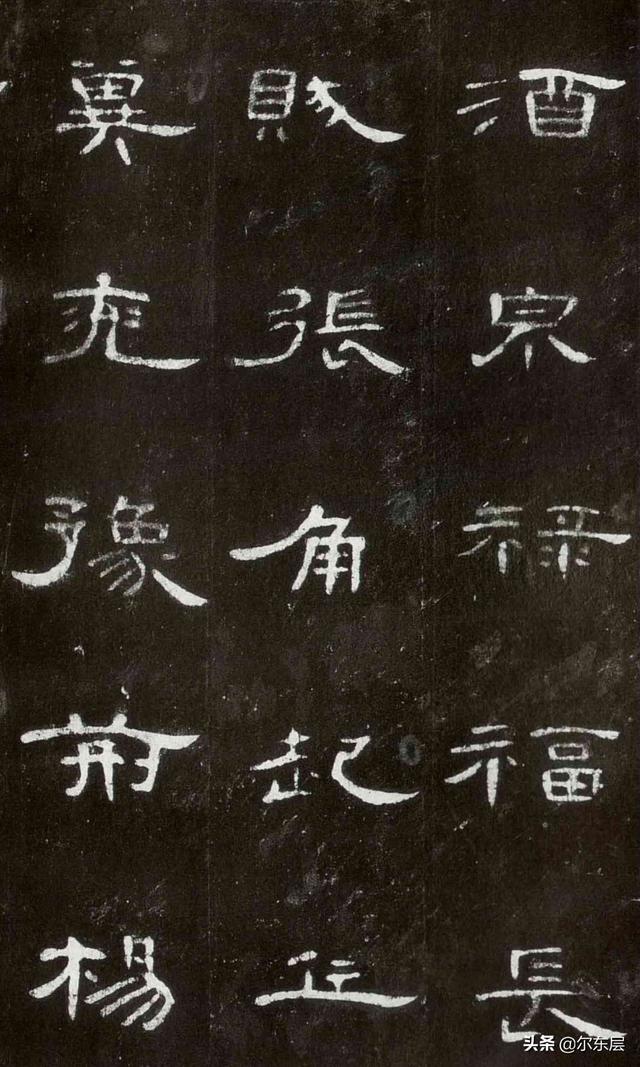 酒泉祿福長
賊張角起兵
冀兗豫荊楊
头条 @尔东层